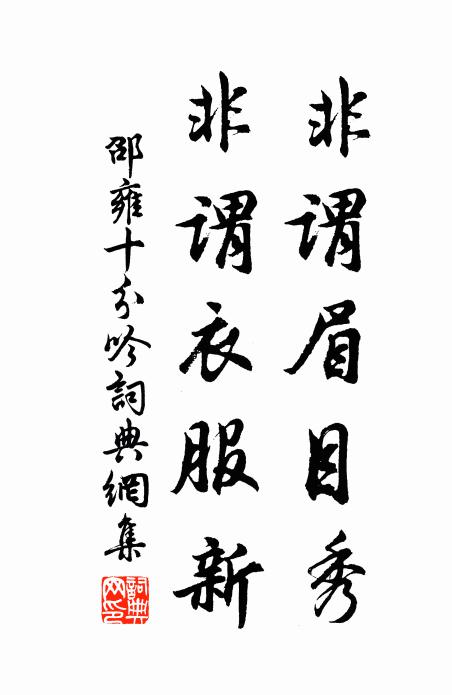 非謂眉目秀
非謂衣服新
邵雍十分吟詞典網集
詞典網印